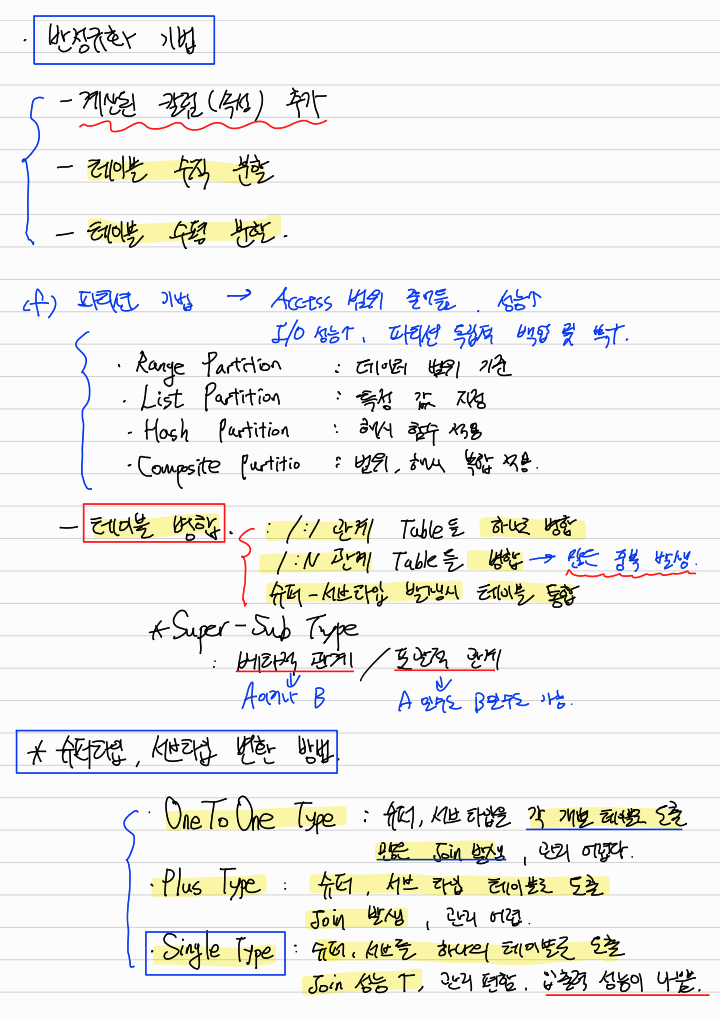 · 반정규화 기법
- 계산된 칼럼(속성) 추가
- 테이블 수직 분할
- 테이블 수평 분할.
cf) 파티션 기법 → Access 범위 줄어듦. 성능↑
I/O 성능↑, 파티션 독립적 백업 및 복구.
· Range Partition : 데이터 범위 기준
· List Partition : 특정 값 지정
· Hash Partition : 해시 함수 적용
· Composite Partitio : 범위, 해시 복합 적용.
- 테이블 병합. : 1:1 관계 Table들 하나로 병합
1:N 관계 Table들 병합 → 많은 중복 발생.
슈퍼-서브타입 발생시 테이블 통합
* Super-Sub Type
: 배타적 관계 / 포괄적 관계
A이거나 B A 일수도 B일수도 가능.
* 슈퍼타입, 서브타입 변환 방법.
· OneToOne Type : 슈퍼, 서브 타입을 각 개별 테이블로 도출
많은 Join 발생, 관리 어렵다.
· Plus Type : 슈퍼, 서브 타입 테이블로 도출
Join 발생, 관리 어렵.
· Single Type : 슈퍼, 서브를 하나의 테이블로 도출
Join 성능↑, 관리 편함. 입출력 성능이 나쁨.